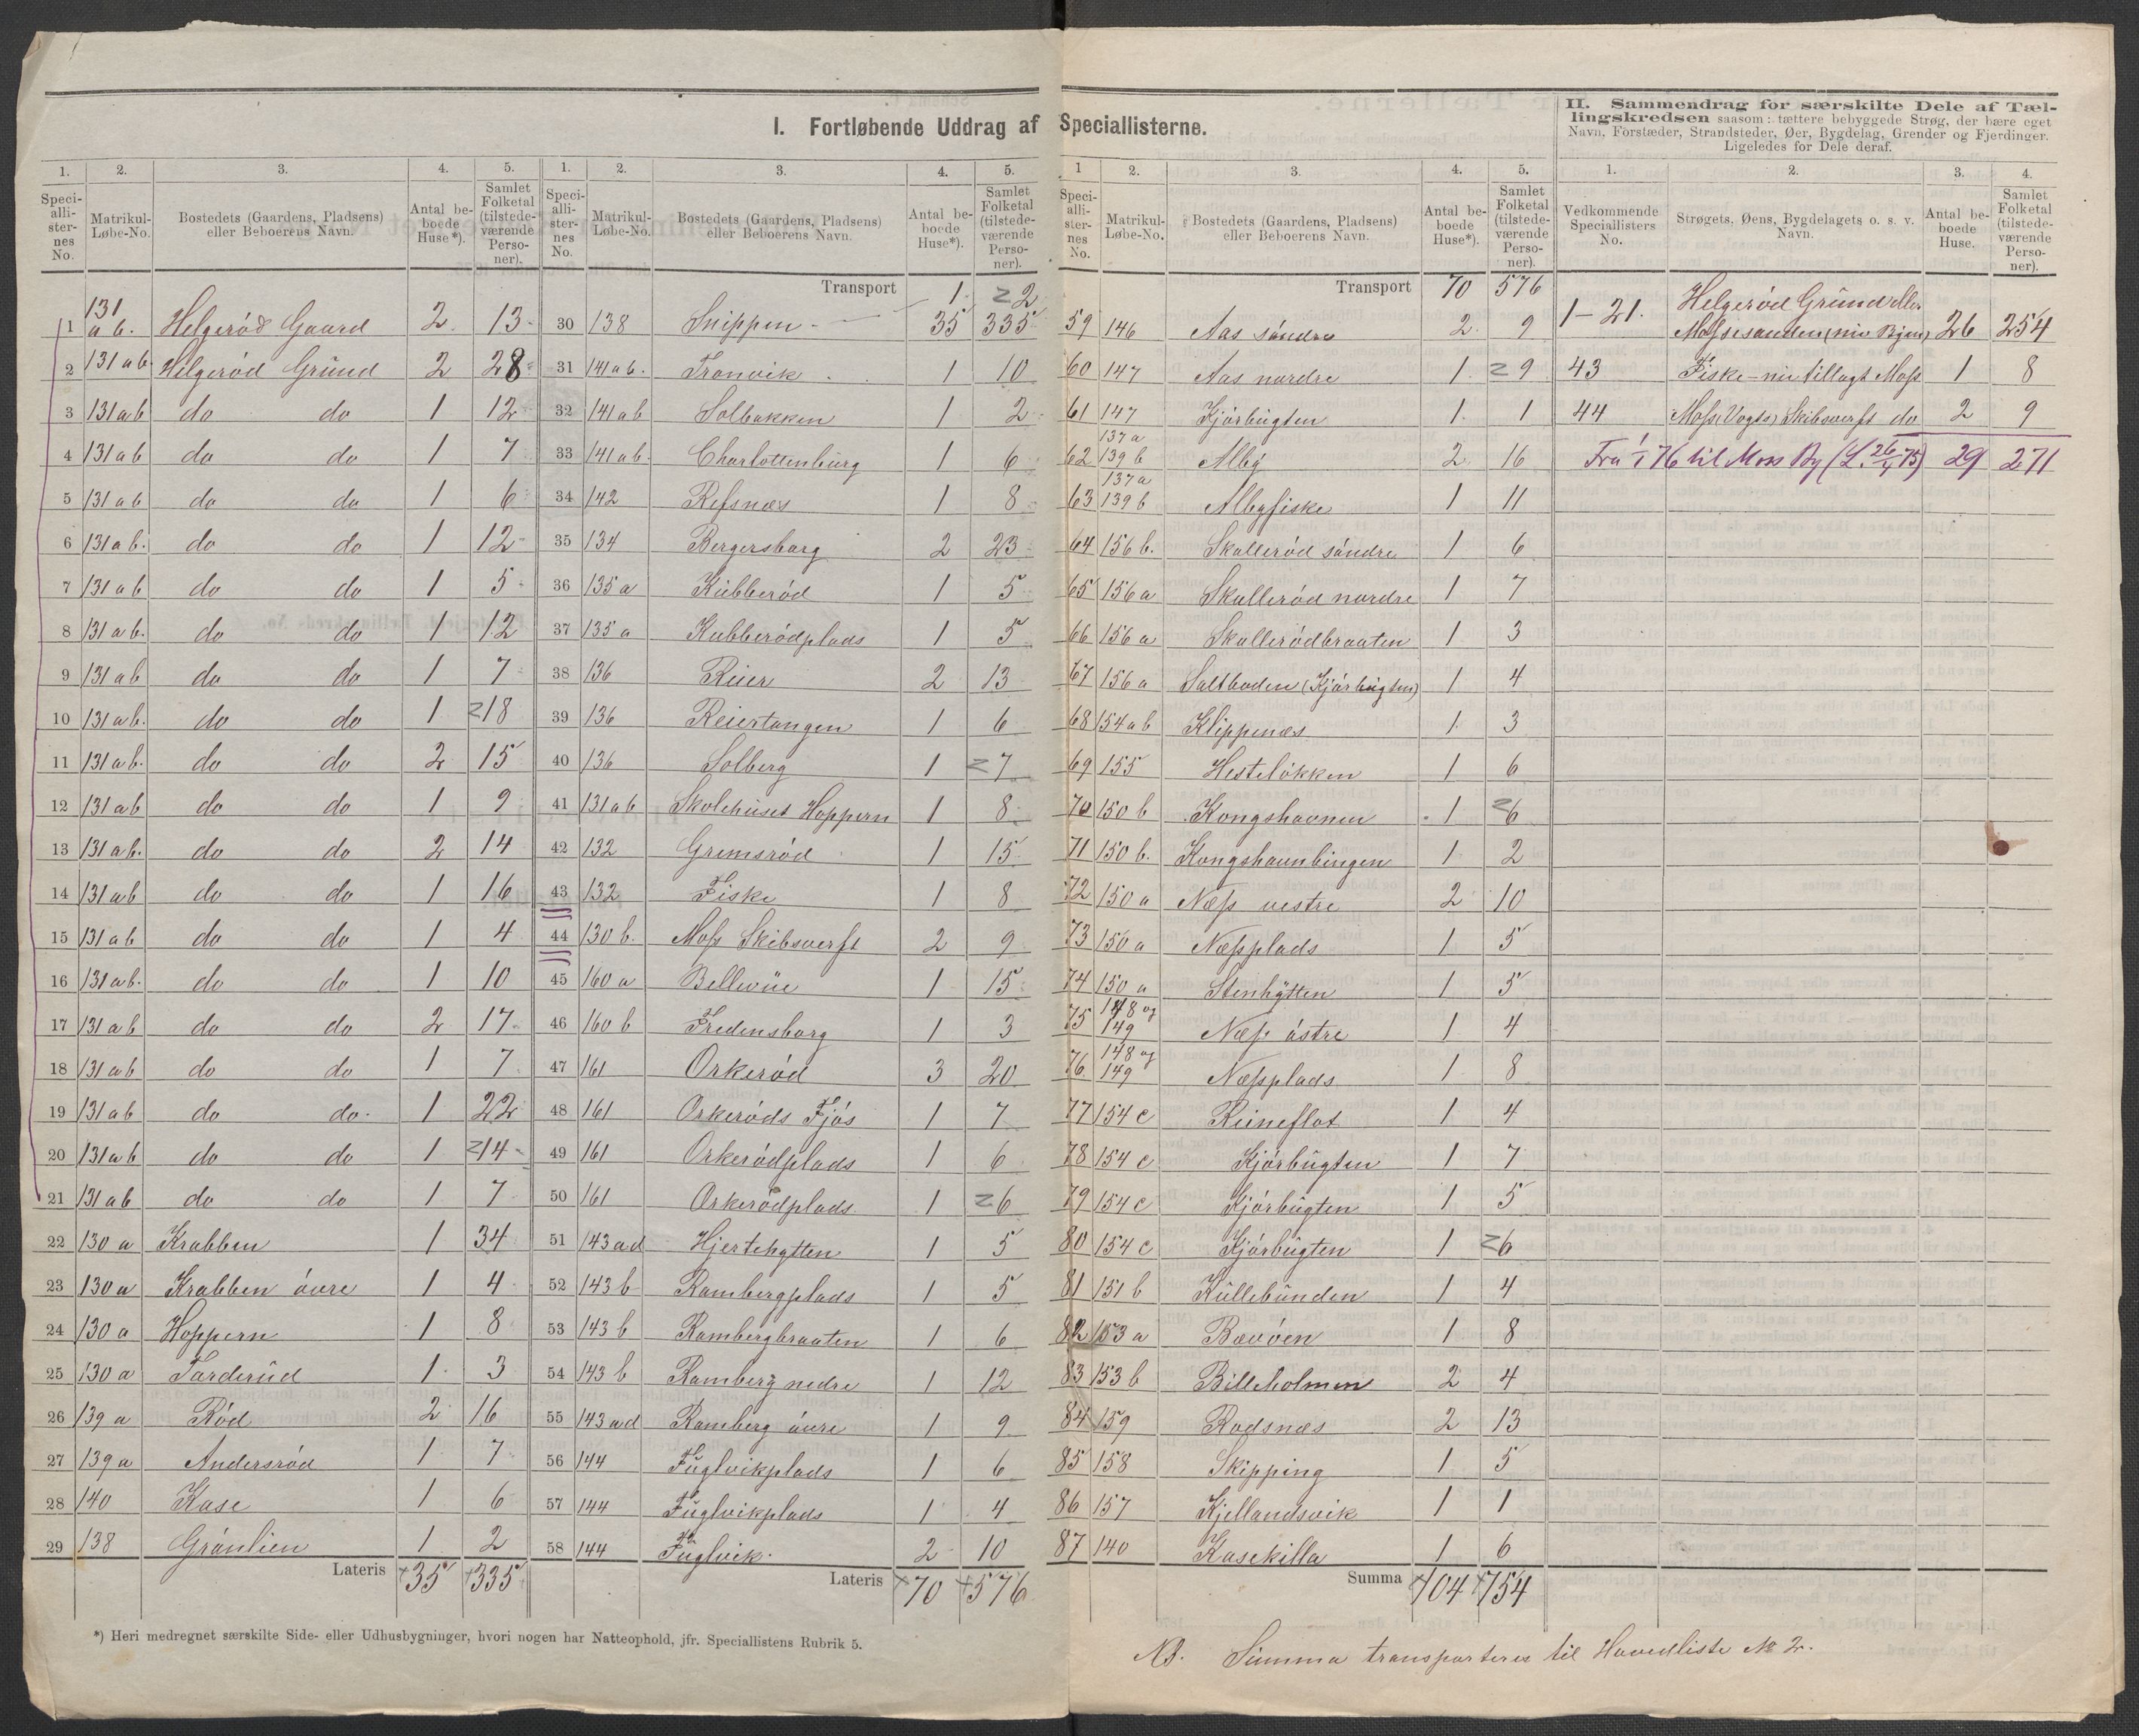 I. Fortløbende Uddrag af Speciallisterne.
1. 2. 3. 4. 5.
Speciallisternes No. Matrikul-Løbe-No. Bostedets (Gaardens, Pladsens) eller Beboerens Navn. Antal beboede Huse*). Samlet Folketal (tilstedeværende Personer).
1 131 a b. Helgerød Gaard 2 13
2 131 a b Helgerød Gründ 2 28
3 131 a b do do 1 12
4 131 a b do do 1 7
5 131 a b do do 1 6
6 131 a b. do do 1 12
7 131 a b do do 1 5
8 131 a b. do do 1 12
9 131 a b do do 1 7
10 131 a b. do do 1 18
11 131 a b. do do 2 15
12 131 a b do do 1 9
13 131 a b. do do 2 14
14 131 a b do do 1 16
15 131 a b do do 1 4
16 131 a b. do do 1 10
17 131 a b do do 2 17
18 131 a b do do 1 7
19 131 a b do do. 1 22
20 131 a b do do 1 14
21 131 a b do do 1 7
22 130 a Krabben 1 34
23 130 a Krabben övre 1 4
24 130 a Hoppern 1 8
25 130 a Tarderüd 1 3
26 139 a Röd 2 16
27 139 a Andersröd 1 7
28 140 Kase 1 6
29 138 Grönlien 1 2
Lateris 35 335
*) Heri medregnet særskilte Side- eller Udhusbygninger, hvori nogen har Natteophold, jfr. Speciallistens Rubrik 5.
1. 2. 3. 4. 5.
Speciallisternes No. Matrikul-Løbe-No. Bostedets (Gaardens, Pladsens) eller Beboerens Navn. Antal beboede Huse*). Samlet Folketal (tilstedeværende Personer).
Transport 35 335
30 138 Snippen 1 2
31 141 a b. Tronvik 1 10
32 141 a b Solbakken 1 2
33 141 a b. Charlottenbürg 1 6
34 142 Refsnæs 1 8
35 134 Bergersborg 2 23
36 135 a Kübberöd 1 5
37 135 a Kubberödplads 1 5
38 136 Reier 2 13
39 136 Reiertangen 1 6
40 136 Solberg 1 7
41 131 a b Skolehüset Hoppern 1 8
42 132 Gremsröd 1 15
43 132 Fiske 1 8
44 130 b. Moss Skibsverft 2 9
45 160 a Bellevüe 1 15
46 160 b Fredensborg 1 3
47 161 Orkeröd 3 20
48 161 Orkeröds Fjös 1 7
49 161 Orkerödplads 1 6
50 161 Orkerödplads 1 6
51 143 ad Hjertehytten 1 5
52 143 b Rambergplads 1 5
53 143 b Rambergbraaten 1 6
54 143 b Ramberg nedre 1 12
55 143 ad Ramberg övre 1 9
56 144 Füglvikplads 1 6
57 144 Füglvikplads 1 4
58 144 Füglvik 2 10
Lateris 70 576
1 2. 3. 4. 5.
Speciallisternes No. Matrikul-Løbe-No. Bostedets (Gaardens, Pladsens) eller Beboerens Navn. Antal beboede Huse*). Samlet Folketal (tilstedeværende Personer).
Transport 70 576
59 146 Aas söndre 2 9
60 147 Aas nordre 1 9
61 147 Kjörbügten 1 1
62 137 a 139 b Alby 2 16
63 137 a 139 b Albyfiske 1 11
64 156 b. Skalleröd söndre 1 6
65 156 a Skalleröd nordre 1 7
66 156 a Skallerödbraaten 1 3
67 156 a Saltboden (Kjörbügten) 1 4
68 154 a b Klippenæs 1 3
69 155 Hestelökken 1 6
70 150 b Kongshavnen 1 6
71 150 b. Kongshavnbingen 1 2
72 150 a Næss vestre 2 10
73 150 a Næssplads 1 5
74 150 a Stenhytten 1 5
75 148 og 149 Næss östre 1 4
76 148 og 149 Næssplads 1 8
77 154 c Reineflot 1 4
78 154 c Kjörbügten 1 7
79 154 c Kjörbügten 1 5
80 154 c Kjörbügten 1 6
81 151 b Küllebünden 1 4
82 153 a Bævöen 1 8
83 153 b Billeholmen 2 4
84 159 Rødsnæs 2 13
85 158 Skipping 1 5
86 157 Kjellandsvik 1 1
87 140 Kasekilla 1 6
Summa 104 754
NB. Summa transporteres til Hovedliste No 2.
II. Sammendrag for særskilte Dele af Tællingskredsen saasom: tættere bebyggede Strøg, der bære eget
Navn, Forstæder, Strandsteder, Øer, Bygdelag, Grender og Fjerdinger.
Ligeledes for Dele deraf.
1. 2. 3. 4.
Vedkommende Speciallisters No. Strøgets, Øens, Bygdelagets o. s. v. Navn. Antal beboede Huse. Samlet Folketal (tilstedeværende Personer).
1-21. Helgeröd Gründ eller Mossesanden (nu Byen) 26 254
43 Fiske - nu tillagt Moss 1 8
44 Moss (Vogts) Skibsverft do 2 9
Fra 1/1 76 til Moss By (L. 26/4 75) 29 271